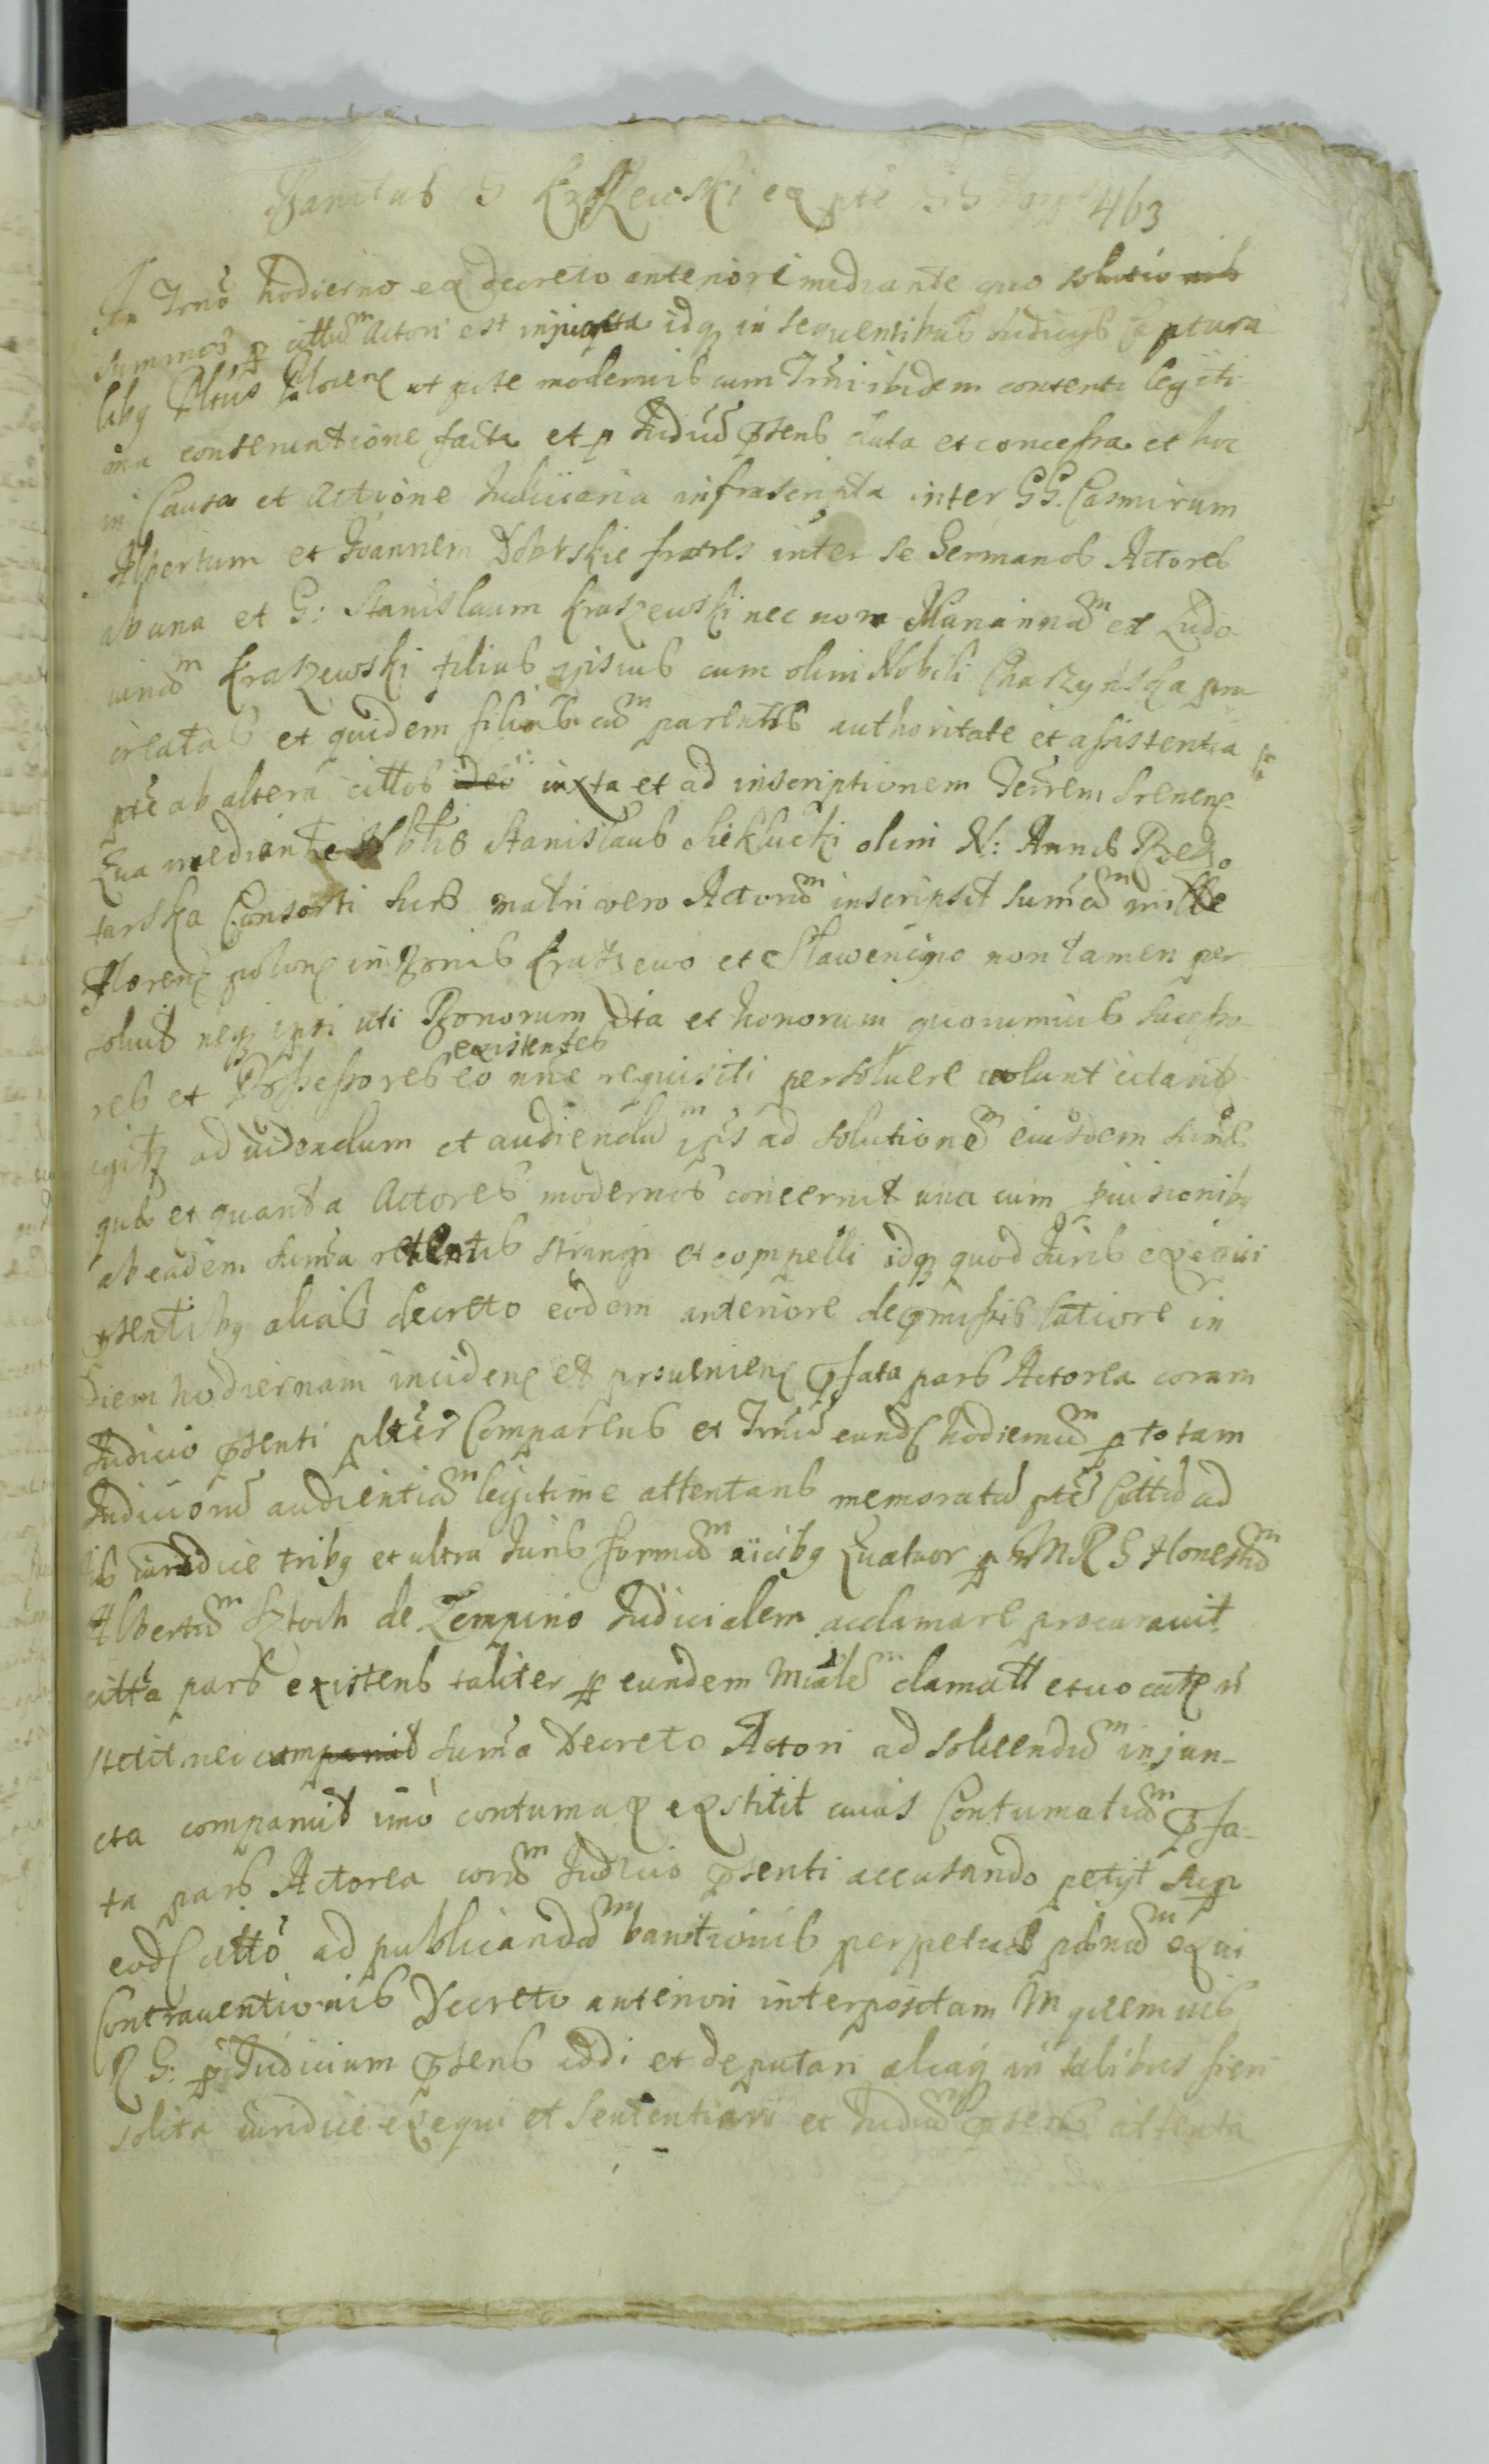 Banitus G Kraszewski ex pte GG
463
In Trno hodierno ex decreto anteriori mediante quo solutio nis
summae p cittu^m Actori est injuncta idq in sequentibus Judicijs Captura
libq Pltus ut pote modernis cum Trni ibidem contenti legiti
ma conseruatione facta et p Judiciu psens data et concessa et hoc
in Causa et Actione Judiciaria infrascripta inter GG. Casmirum
Albertum et Joannem Dobrskie fratres inter se Germanos Actores
ab una et G: Stanislaum Kraszewski nec non Mariannã^m et Ludo
uicã^m Kraszewski filias ipsius cum olim Nobili Charzynska pro
creatas et quidem filias cu^m parentis authoritate et assistentia
pte ab altera cittos ideo iuxta et ad inscriptionem Terrem Srenen
Qua mediante Nbilis Stanislaus olim N: Annæ
tarska Consorti suæ matri vero Actoru^m inscripsit summa^m mille
Floren polon in bonis Kraszewo et Slawencino non tamen per
soluit neq ipsi uti Bonorum dta et honorum quorumuis succesſo
existentes
res et Posseſsores eo nne requisiti persoluere uolunt citant
igitq ad uidendum et audiendu^m ipsis ad solutione^m eiusdem sumæ
quæ et quanta Actores modernos concernit una cum
ab eadem suma retentis stringi et compelli idq quod Juris exequi
psentibq alias decreto eodem anteriore depmissis latiore in
diem hodiernam inciden et prouenien pfata pars Actorea coram
Judicio psenti plter Comparens et Trnu eund hodiernu^m p totam
Judicioru audientia^m legitime attentans memorata pte Citta ad
is iuridice tribq et ultra Juris forma^m uicibq Quatuor p M R G Honestu^m
Albertu^m Sztoch de Zempino Judicialem acclamare procurauit
citta pars existens taliter p eundem Mniale^m clamatt et uocat n
stetit nec comparuit Suma Decreto Actori ad soluendu^m injun-
cta comparuit imo contumax exstitit cuius Contumatia^m pfa-
ta pars Actorea cora^m Judicio psenti accusando petyt sup
eod citto ad publicanda^m banitionis perpetuæ pæna^m ex ui
Contrauentionis Decreto anteriori interpositam M quemuis
R G: p Judicium psens addi et deputari aliaq in talibus fieri
solita iuridice exequi et Sententiari et Judiciu^m psens attenta